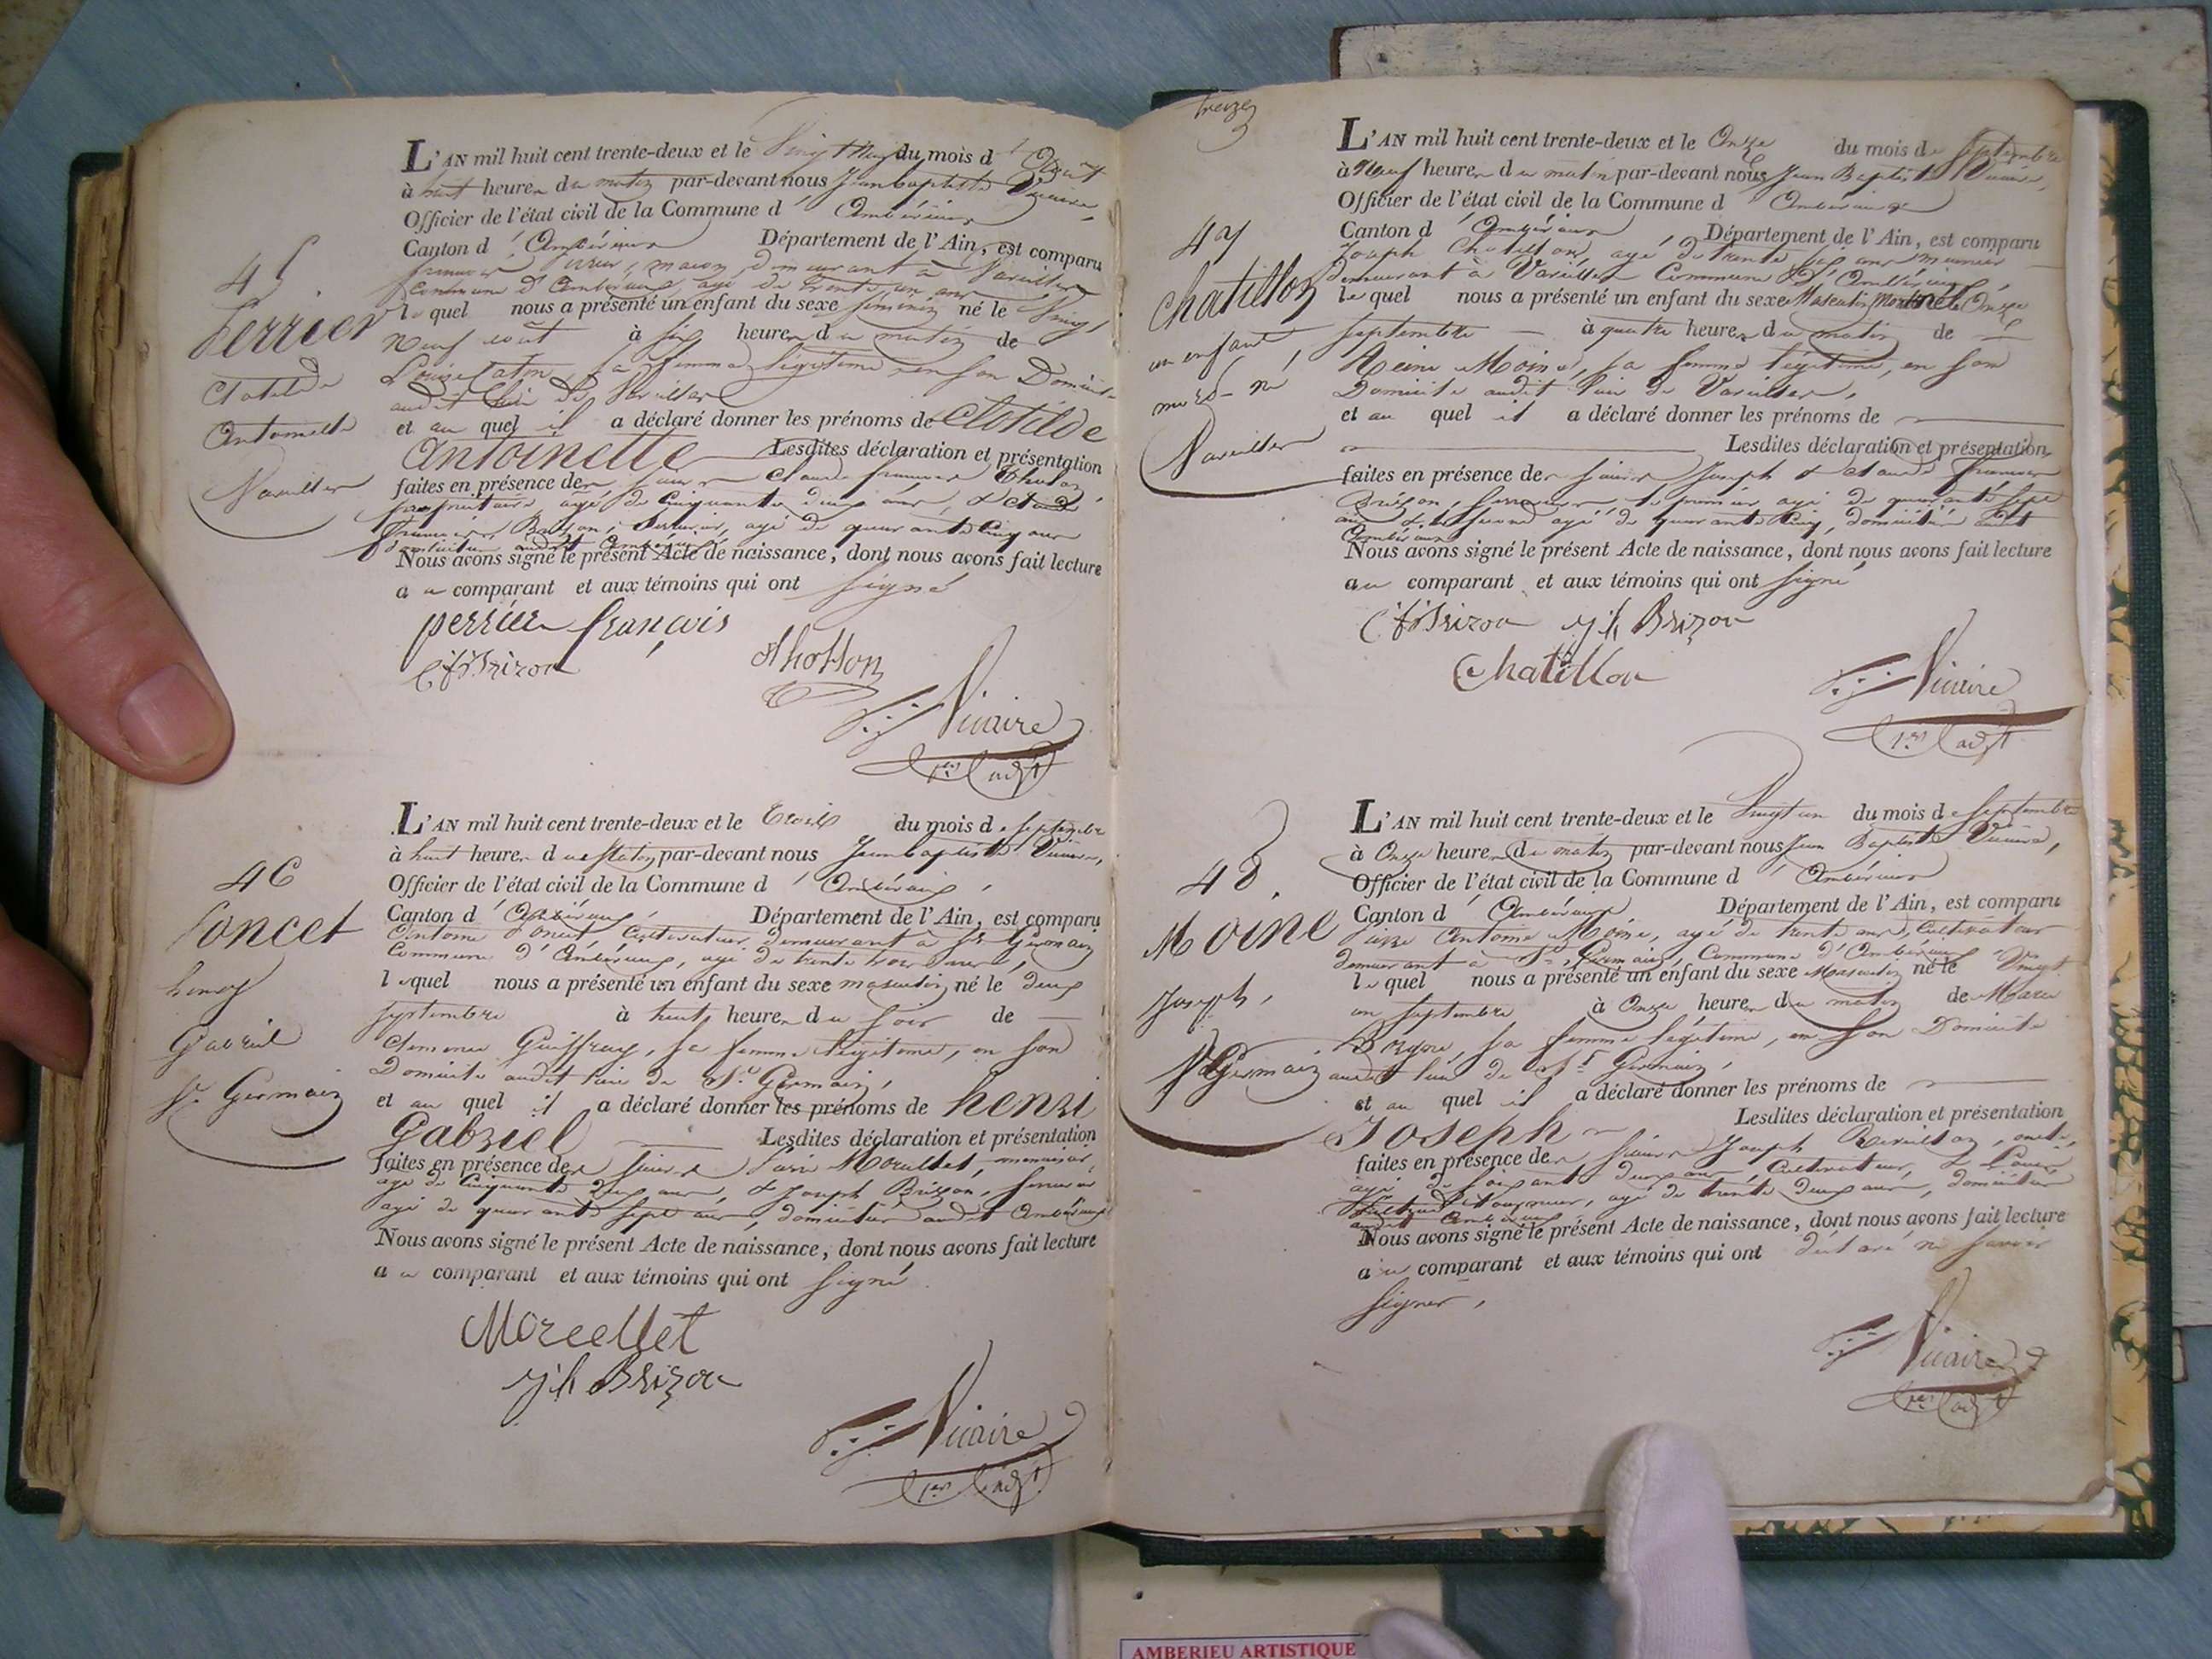 45
Perrier
Clotilde
Antoinette
Vareilles
L'AN mil huit cent trente-deux et le Vingt Neuf du mois d'Août
à huit heures du matin par-devant nous Jean Baptiste Vicaire,
Officier de l'état civil de la Commune d'Ambérieux
Canton d'Ambérieux Département de l'Ain, est comparu
françois Perrier, maçon, demeurant à Vareilles
Commune d'Ambérieux, agé de trente un ans
lequel nous a présenté un enfant du sexe féminin né le Vingt
Neuf août à six heures du matin de
Louise, sa femme légitime en son Domicile
audit lieu de Vareilles
et au quel il a déclaré donner les prénoms de Clotilde
Antoinette Lesdites déclaration et présentation
faites en présence des sieurs Claude françois
propriétaire agé de Cinquante deux ans, & Claude
François Brizon, Serrurier, agé de quarante Cinq ans
domiciliés audit Ambérieux
Nous avons signé le présent Acte de naissance, dont nous avons fait lecture
au comparant et aux témoins qui ont signé
perrier françois
C f Brizon
Vicaire
1er adjt
46
Poncet
henry
Gabriel
St Germain
L'AN mil huit cent trente-deux et le trois du mois de septembre
à huit heures du Matin par-devant nous Jean baptiste Vicaire,
Officier de l'état civil de la Commune d'Ambérieux,
Canton d'Ambérieux, Département de l'Ain, est comparu
Antoine Poncet Cultivateur demeurant à St Germain
Commune d'Ambérieux, agé de trente trois ans,
lequel nous a présenté un enfant du sexe masculin né le deux
septembre à huit heures du soir de
Clemence Guiffray, sa femme légitime, en son
Domicile audit lieu de St Germain,
et au quel il a déclaré donner les prénoms de henri
Gabriel Lesdites déclaration et présentation
faites en présence des sieurs Morcellet, menuisier,
agé de Cinquante deux ans, & Joseph Brizon, serrurier
agé de quarante sept ans, domiciliés audit Ambérieux
Nous avons signé le présent Acte de naissance, dont nous avons fait lecture
au comparant et aux témoins qui ont signé
Morcellet
jh Brizon
Vicaire
1er adjt
treize
47
Chatillon
un enfant
mort-né
Vareilles
L'AN mil huit cent trente-deux et le Onze du mois de Septembre
à Neuf heures du matin par-devant nous Jean Baptiste Vicaire,
Officier de l'état civil de la Commune d'Ambérieux
Canton d'Ambérieux Département de l'Ain, est comparu
Joseph Chatillon, agé de trente six ans meunier
demeurant à Vareilles Commune d'Ambérieux
lequel nous a présenté un enfant du sexe Masculin Mort né le Onze
septembre à quatre heures du matin de
Reine Moine, sa femme légitime, en son
Domicile audit lieu de Vareilles,
et au quel il a déclaré donner les prénoms de
Lesdites déclaration et présentation
faites en présence des sieurs Joseph & Claude François
Brizon, serruriers, le premier agé de quarante sept
ans & le second agé de quarante Cinq, domiciliés audit
Ambérieux
Nous avons signé le présent Acte de naissance, dont nous avons fait lecture
au comparant et aux témoins qui ont signé
C f Brizon jh Brizon
Chatillon
Vicaire
1er adjt
48.
Moine
Joseph,
St Germain
L'AN mil huit cent trente-deux et le Vingt un du mois de Septembre
à Onze heures du matin par-devant nous Jean Baptiste Vicaire,
Officier de l'état civil de la Commune d'Ambérieux
Canton d'Ambérieux Département de l'Ain, est comparu
Antoine Moine, agé de trente ans, Cultivateur
demeurant à St Germain, Commune d'Ambérieux
lequel nous a présenté un enfant du sexe Masculin né le Vingt
un septembre à Onze heures du matin de Marie
sa femme légitime, en son Domicile
audit lieu de St Germain,
et au quel il a déclaré donner les prénoms de
Joseph Lesdites déclaration et présentation
faites en présence des sieurs Joseph
agé de soixante deux ans, Cultivateur, &
agé de trente deux ans, domiciliés
audit Ambérieux
Nous avons signé le présent Acte de naissance, dont nous avons fait lecture
au comparant et aux témoins qui ont déclaré ne savoir
signer,
Vicaire
1er adjt
AMBERIEU ARTISTIQUE